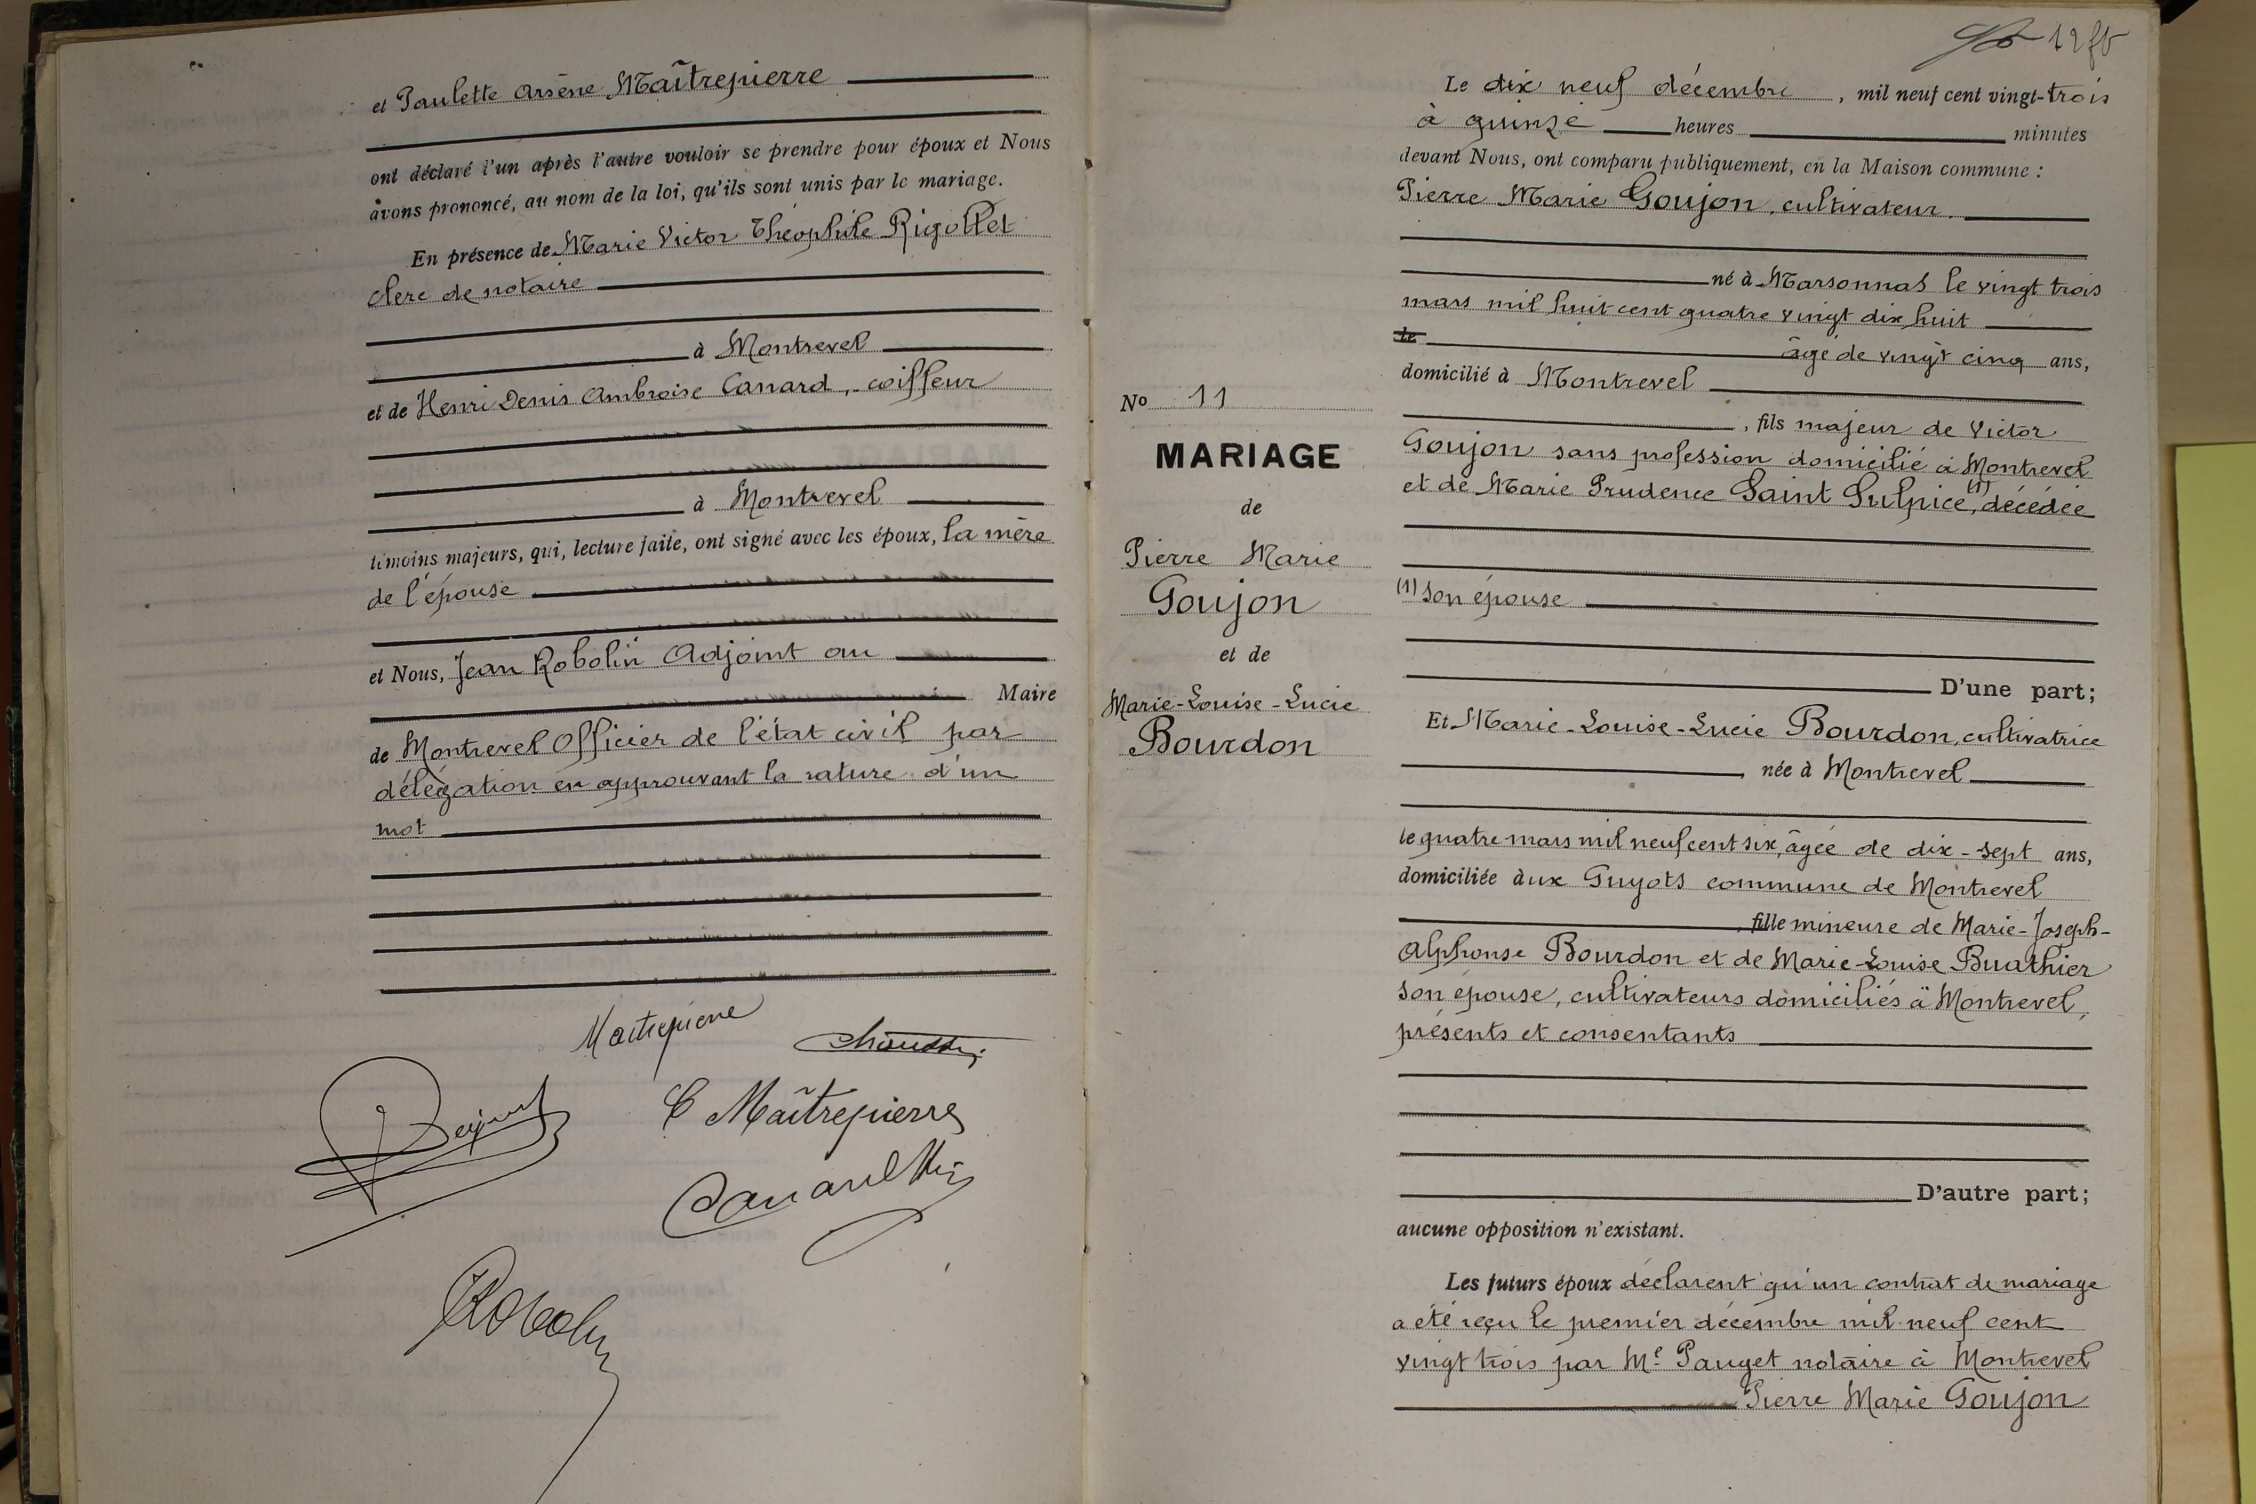 et Paulette Arsène Maîtrepierre
ont déclaré l'un après l'autre vouloir se prendre pour époux et Nous
avons prononcé, au nom de la loi, qu'ils sont unis par le mariage.
En présence de Marie Victor Théophile Rigollet
clerc de notaire
à Montrevel
et de Henri Denis Ambroise Canard, coiffeur
à Montrevel
témoins majeurs, qui, lecture faite, ont signé avec les époux, la mère
de l'épouse
et Nous, Jean Robolin Adjoint au
Maire
de Montrevel Officier de l'état civil par
délégation en approuvant la rature d'un
mot
Maitrepierre
C Maîtrepierre
Robolin
12
Le dix neuf décembre, mil neuf cent vingt-trois
à quinze heures minutes
devant Nous, ont comparu publiquement, en la Maison commune :
Pierre Marie Goujon, cultivateur
né à Marsonnas le vingt trois
mars mil huit cent quatre vingt dix huit
le âgé de vingt cinq ans,
domicilié à Montrevel
, fils majeur de Victor
Goujon sans profession domicilié à Montrevel
et de Marie Prudence Saint Sulpice, (1) décédée
(1) son épouse
D'une part;
No 11
MARIAGE
de
Pierre Marie
Goujon
et de
Marie-Louise-Lucie
Bourdon
Et Marie-Louise-Lucie Bourdon, cultivatrice
, née à Montrevel
le quatre mars mil neuf cent six, âgée de dix-sept ans,
domiciliée aux Guyots commune de Montrevel
, fille mineure de Marie-Joseph-
Alphonse Bourdon et de Marie-Louise Buathier
son épouse, cultivateurs domiciliés à Montrevel,
présents et consentants
D'autre part;
aucune opposition n'existant.
Les futurs époux déclarent qu'un contrat de mariage
a été reçu le premier décembre mil neuf cent
vingt trois par Me Pauget notaire à Montrevel
Pierre Marie Goujon